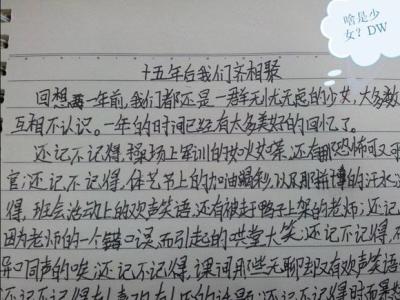 啥是少
女？DW
十五年后我们齐相聚
回想两一年前，我们都还是一群无忧无虑的少女，大多数
互相不认识。一年的时间已经有太多美好的回忆了。
还记不记得，操场上军训的按水如柴，还有那恐怖可又
官；还记不记得，体艺节上的加油喝彩，以及那拼搏的汗水
得，班会活动上的欢声笑语，还有被赶鸭子上架的老师；还记
因为老师的一个错口误而引起的哄堂大笑；还记不记得，
异口同声的唉；还记不记得，课间那些无聊却又有欢声笑语
还记不记得